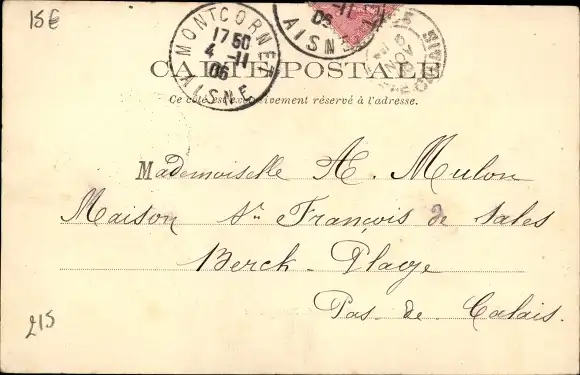 15€
MONTCORNET
17 50
4 -11
06
AISNE
-11
06
AISNE
NOV
CARTE POSTALE
Ce côté est exclusivement réservé à l'adresse.
Mademoiselle A. Mulon
Maison St François de Sales
Berck-Plage
Pas-de-Calais.
215